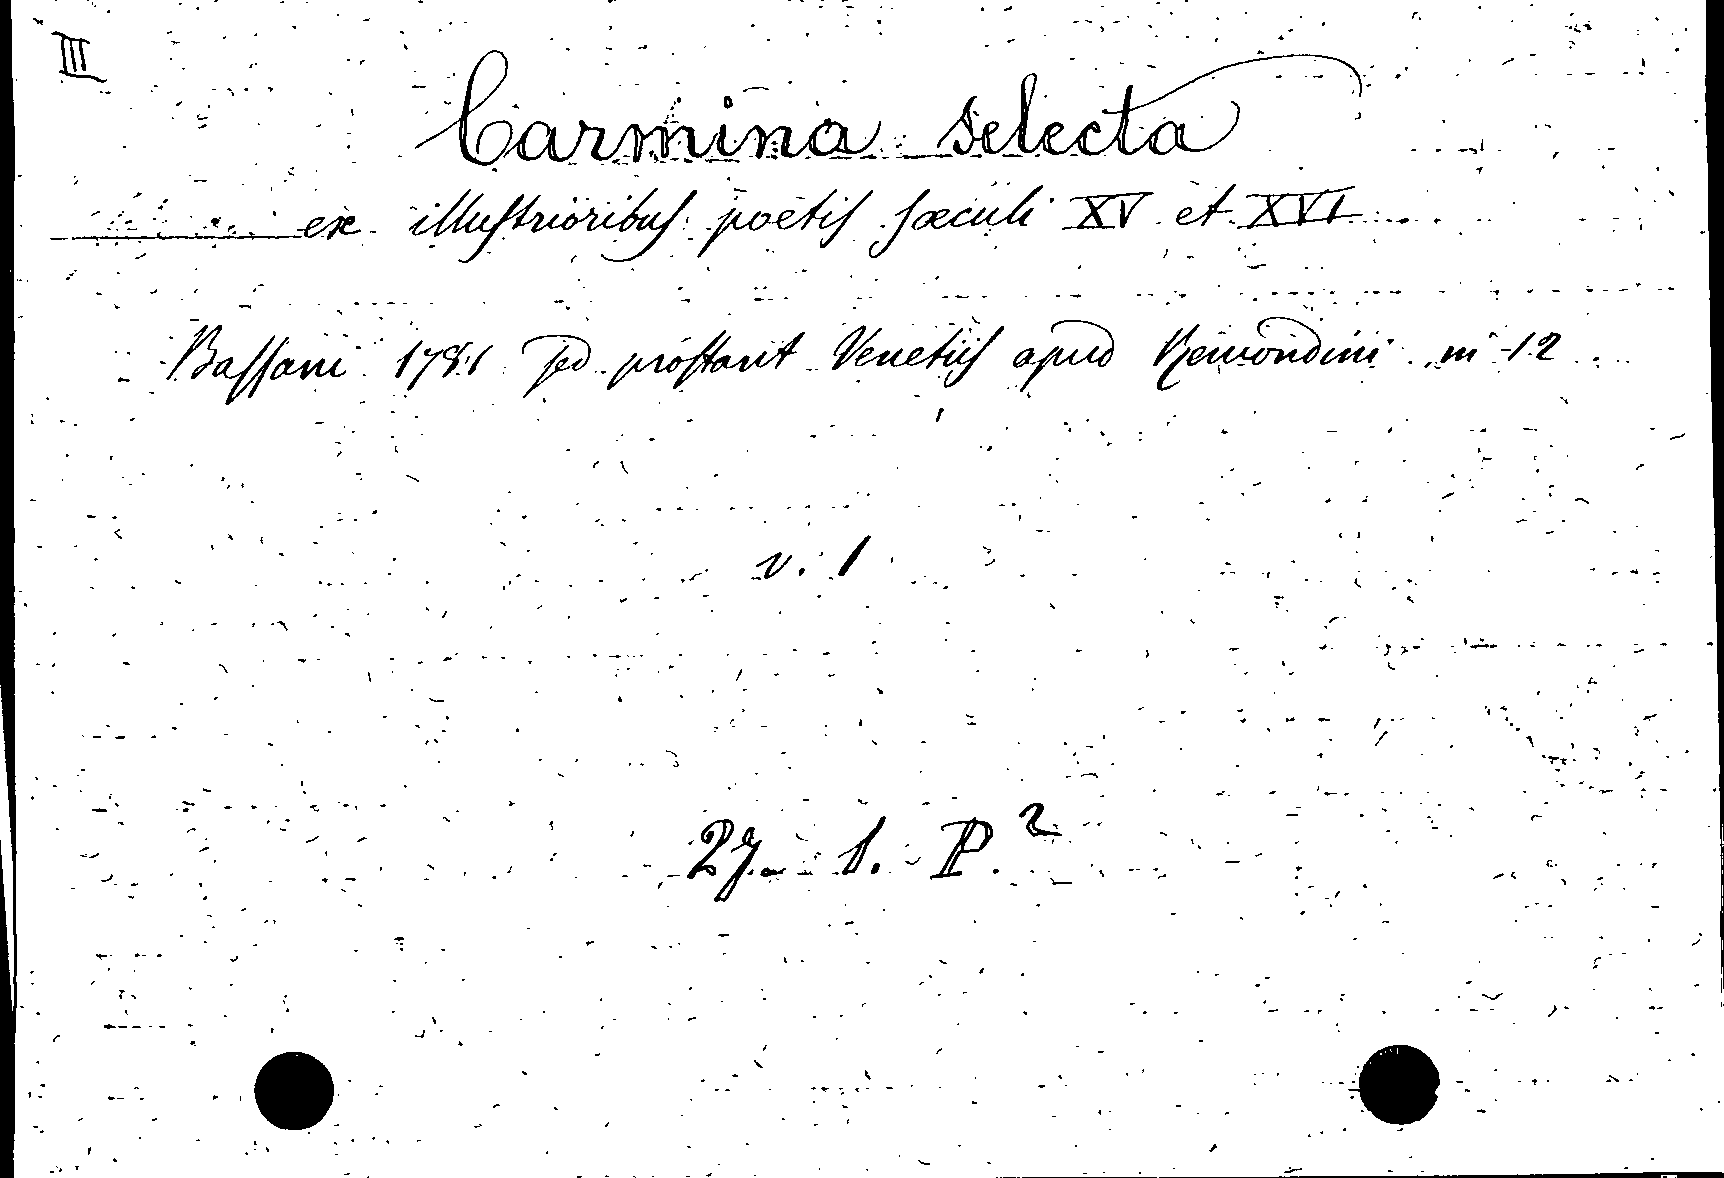 III
Carmina selecta
ex illustrioribus poëtis sæculi XV et XVI
Bassani 1781 sed prostant Venetiis apud Remondini in 12
v. 1
27. 1. P.²